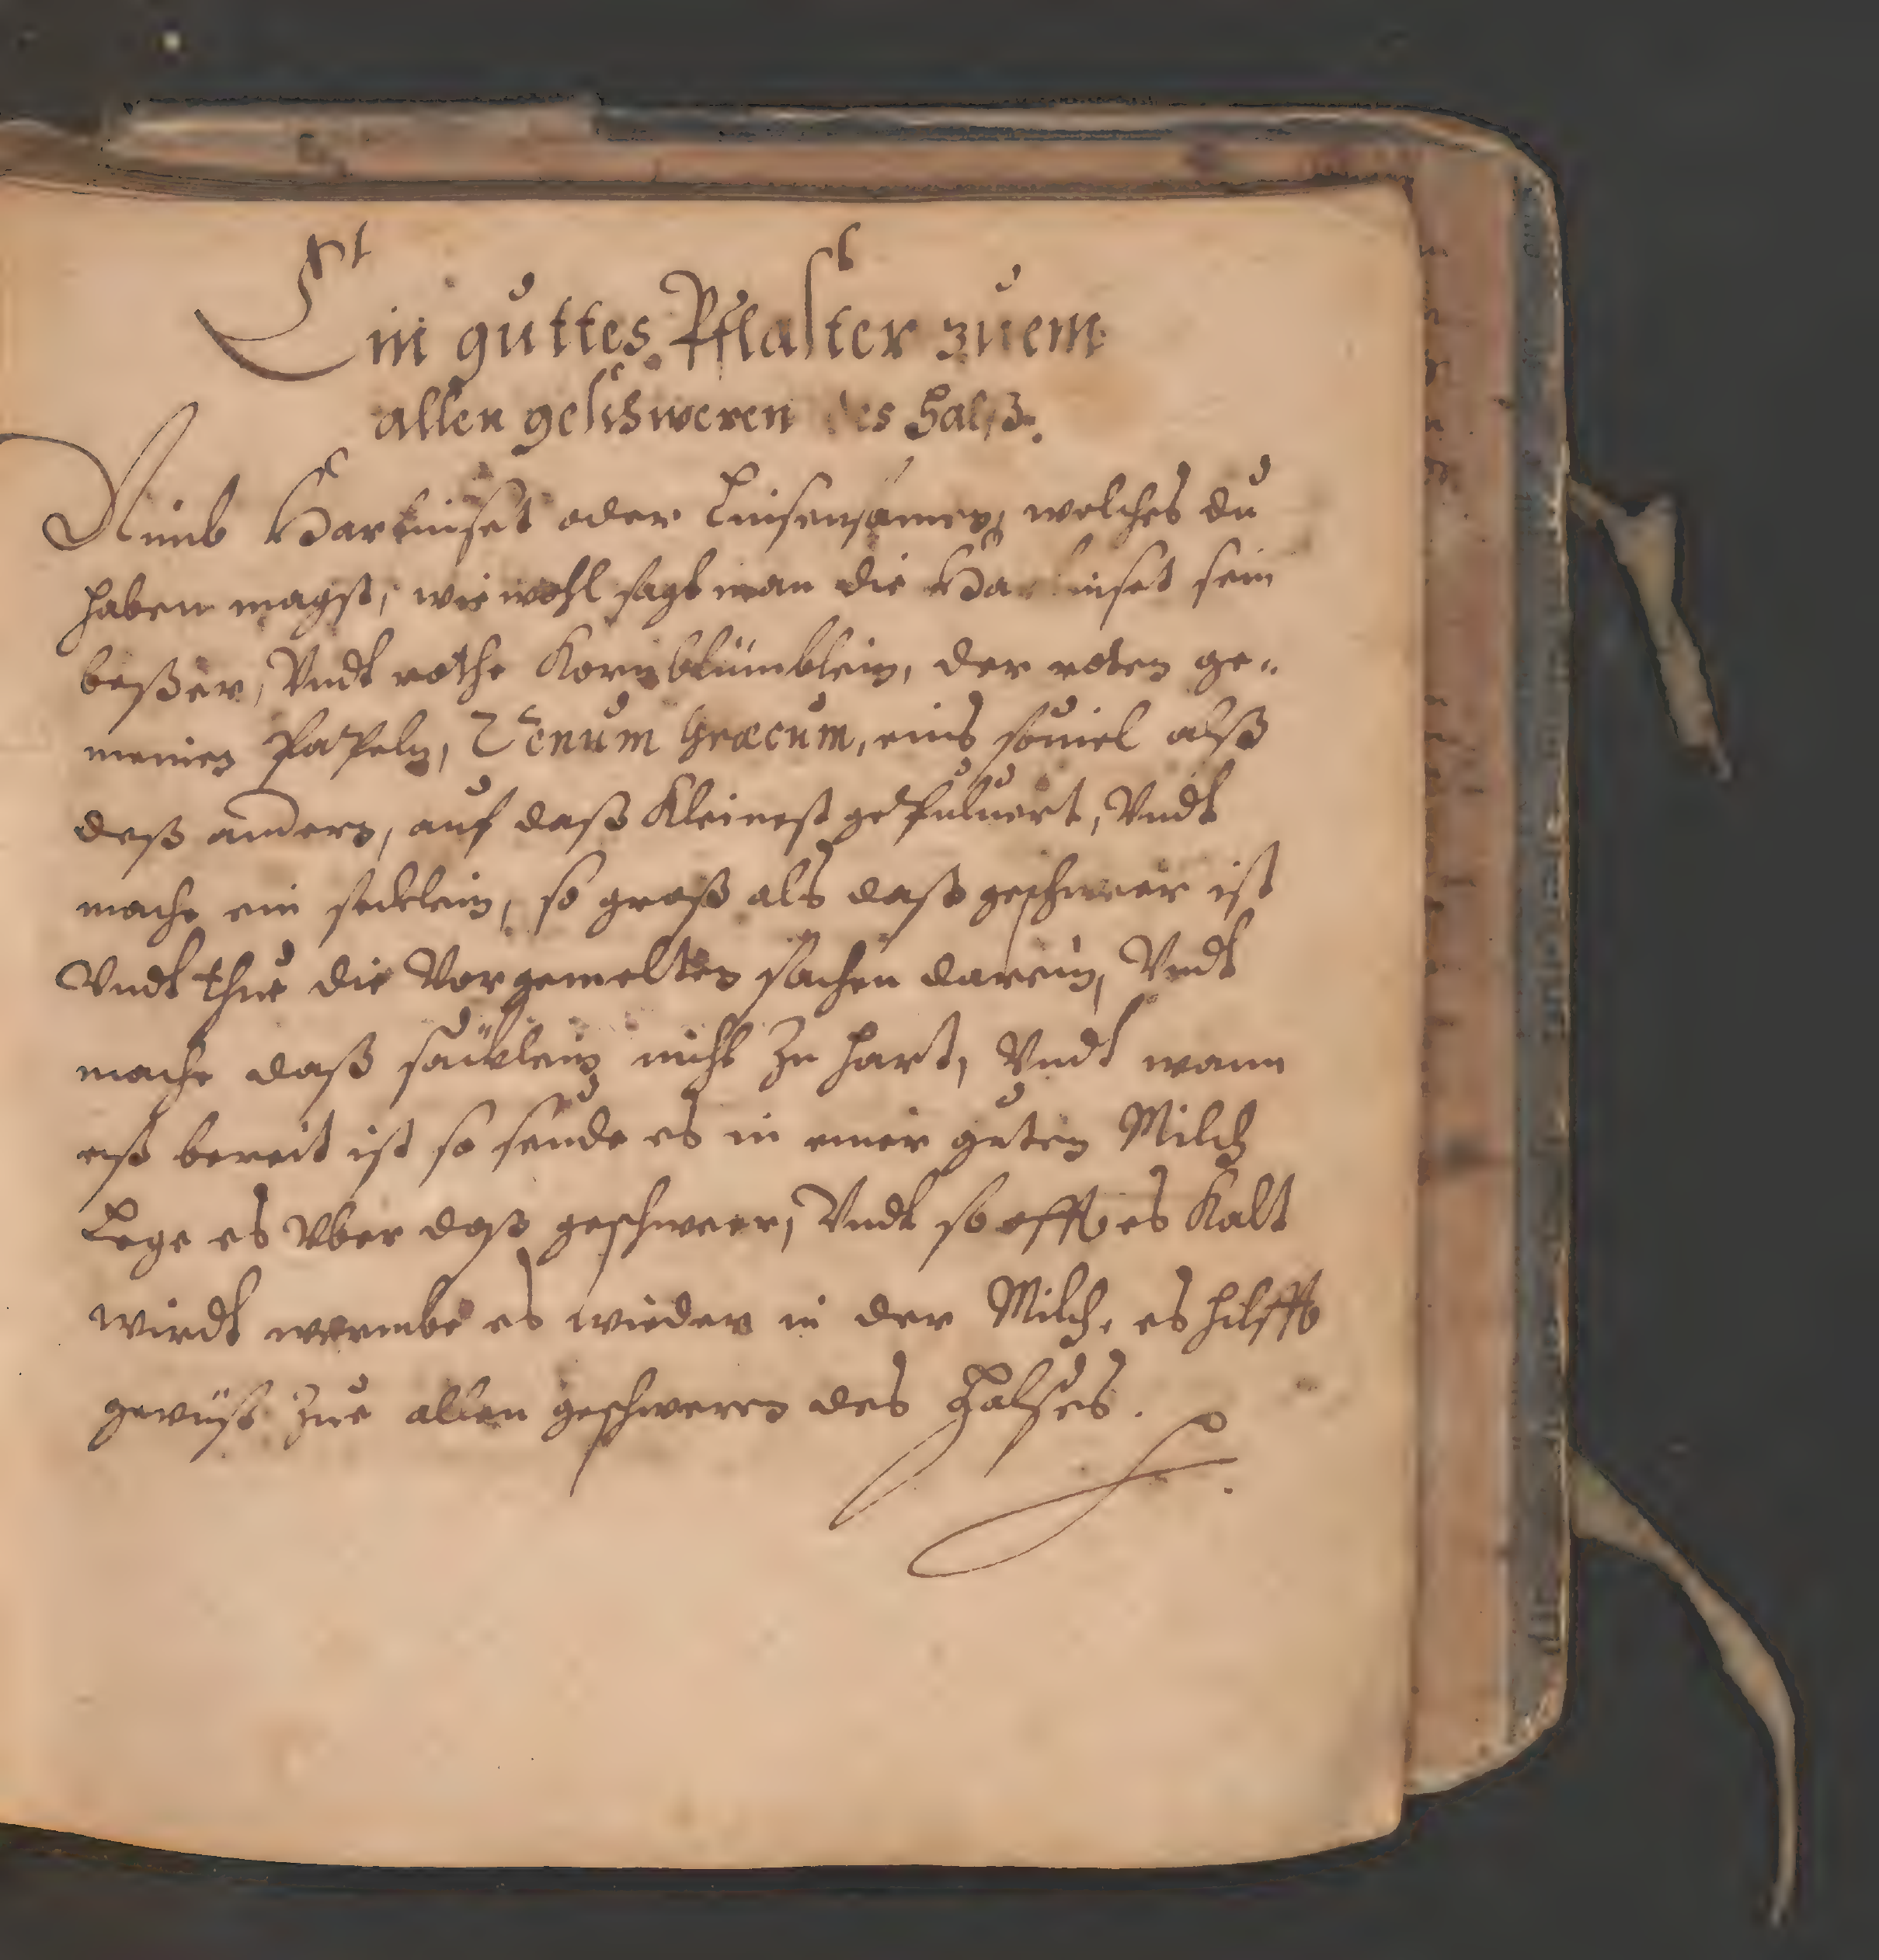 Ein guttes Pflaster zuem
allen geschweren des Halß.
Nimb Harlinset oder Linsensamen, welches du
haben magst, wie wohl sagt man die sein
beßer, Vndt rothe Kornblümblein, der roten ge-
meinen Papeln, Fenum Græcum, eins souiel alß
deß andern, auf daß Kleinest gepuluert, Vndt
mache ein secklein, so groß als daß geschweer ist
Vndt thue die Vorgemelten sachen darein, Vndt
mache daß säcklein nicht Zu hart, Vndt wann
eß bereit ist so seude es in einer guten Milch
Lege es Vber daß geschweer, Vndt so offt es Kalt
wirdt wermbe es wieder in der Milch, es hilfft
gewüß Zue allen geschweren des Halses.